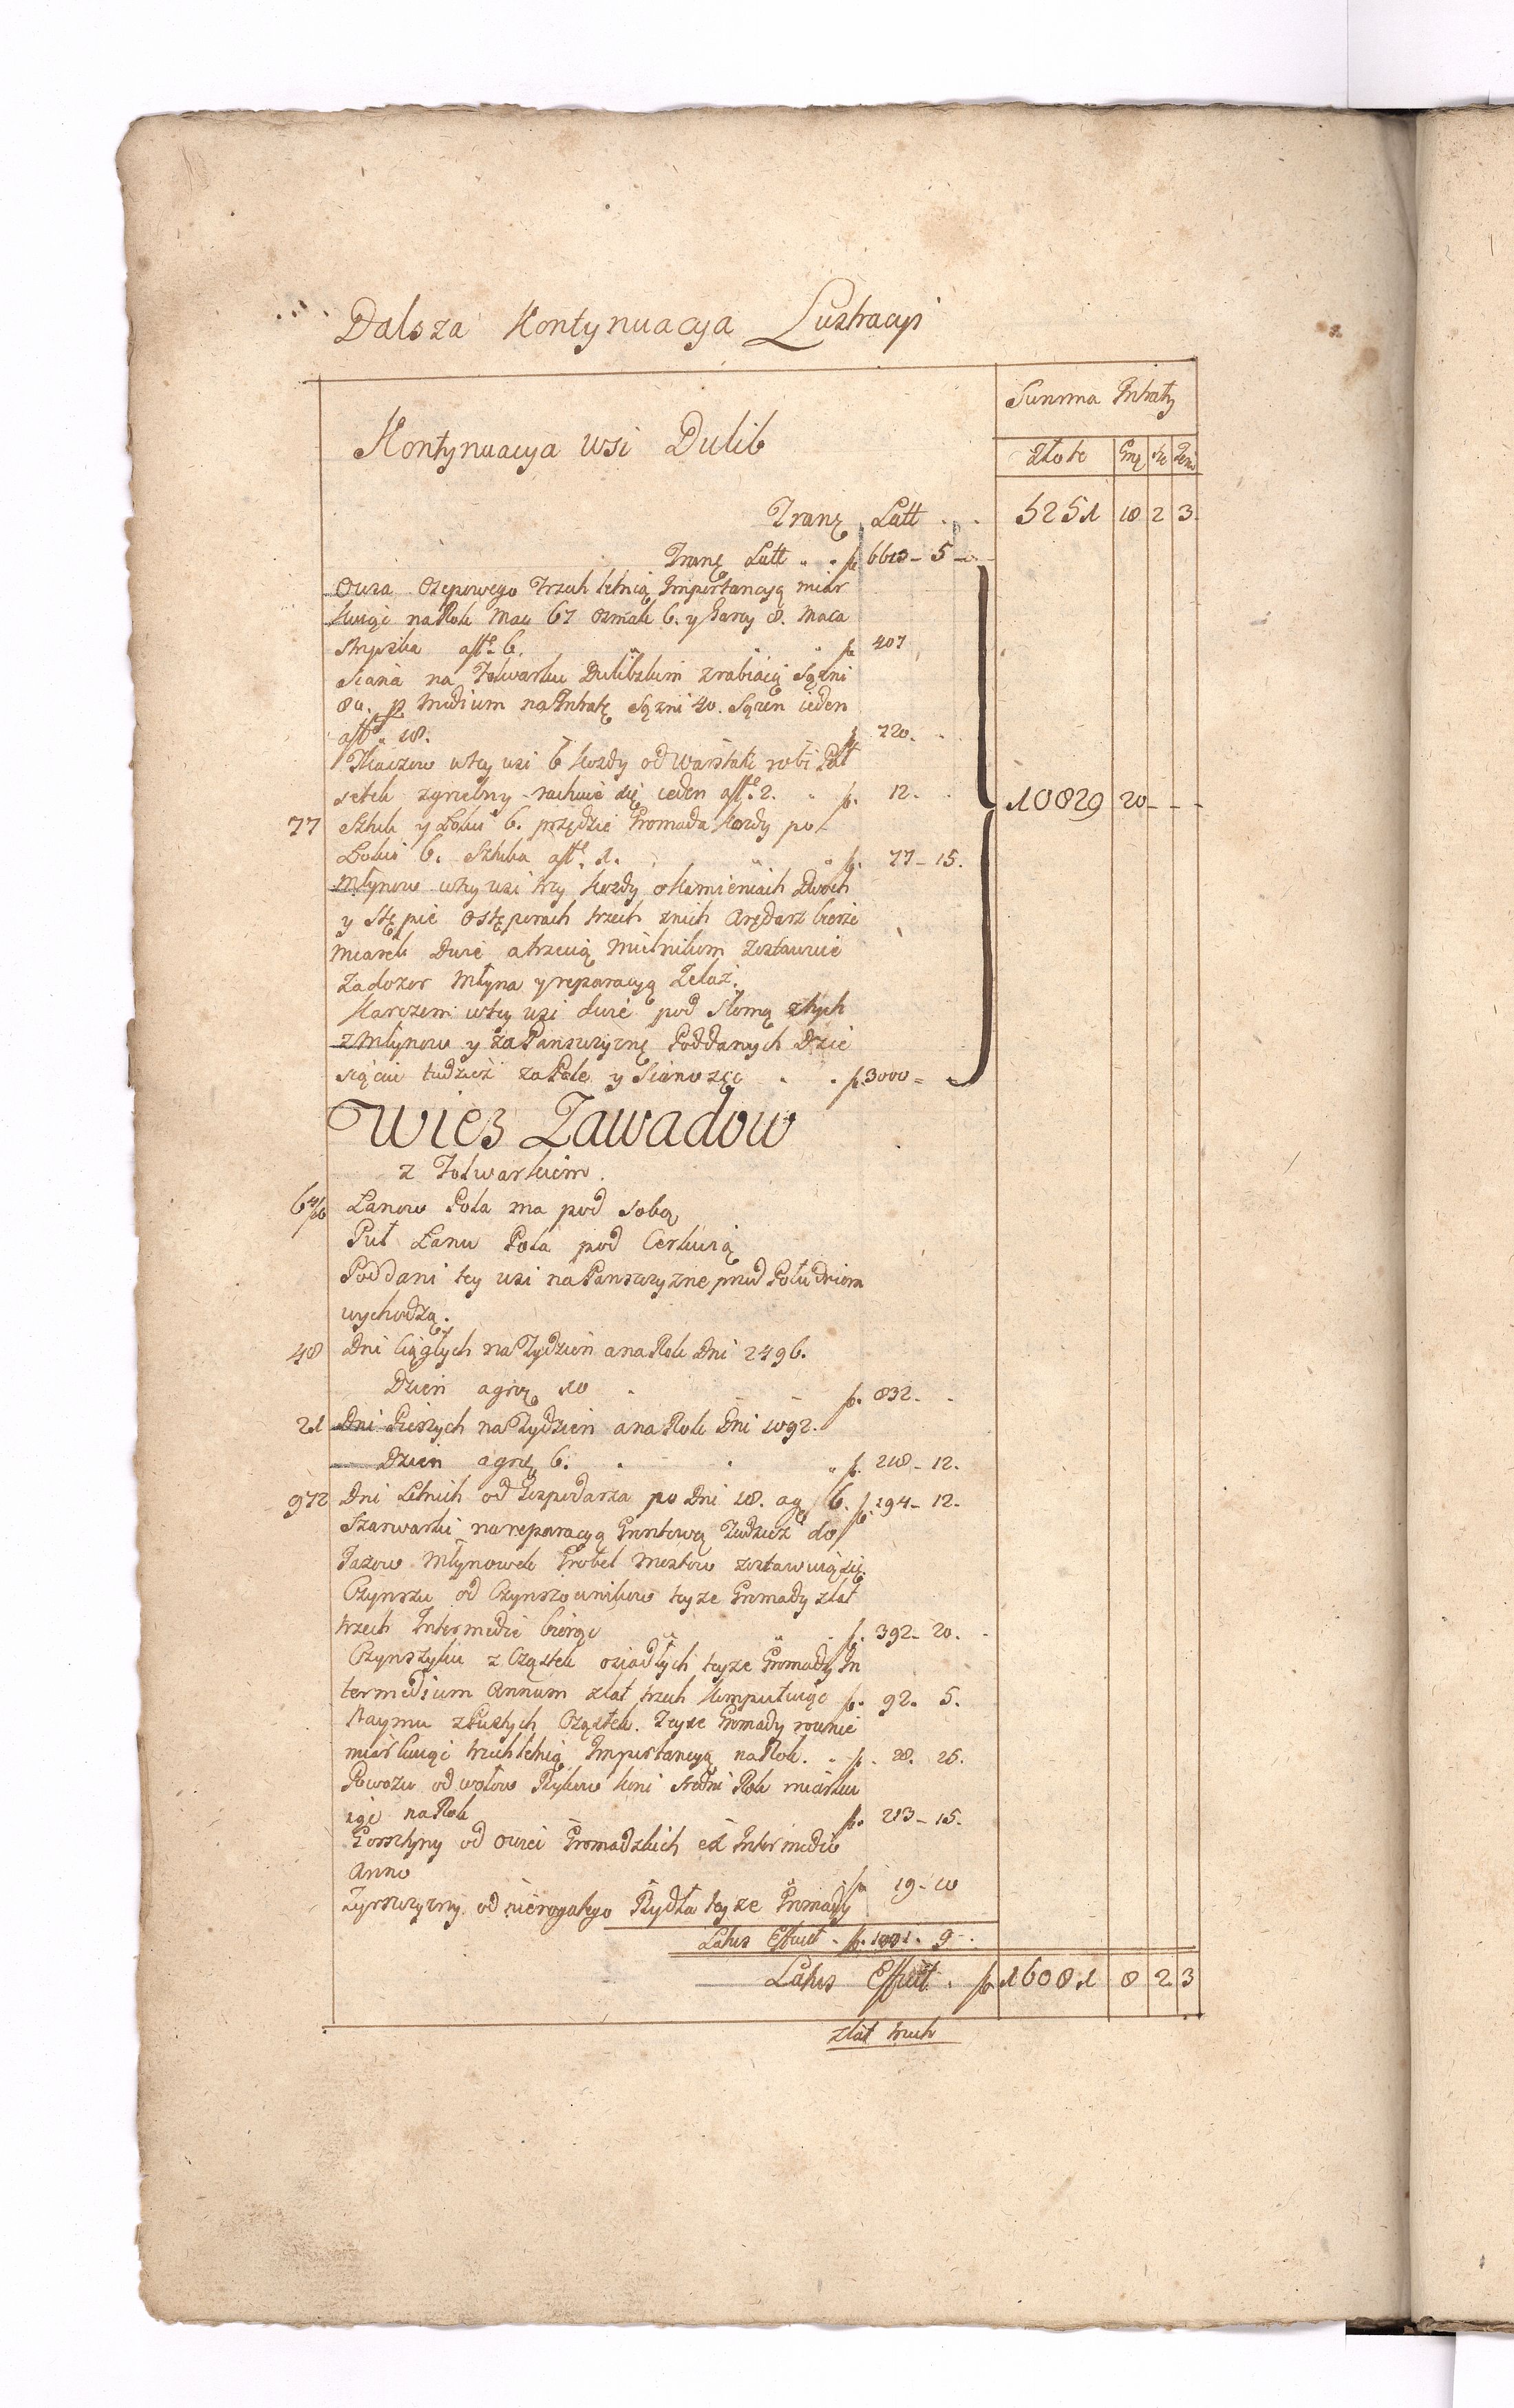 Dalsza Kontynuacya Lustracyi
Summa Intraty
Kontynuacya wsi Dulib
Złote Grę Sze Deni
Tranę Latt . . 5251 18 2 3.
Tranę Latt . . f 6613 - 5 -
Owsa Osepowego Trzech letnią Importancyą miar
kuiąc na Rok Mac 67 Osmak 6. y Garcy 8. Maca
Stryiska aff. 6. f 407
Siana na Folwarku Dulibskim zrabiaią Sązni
80. p Medium na Intratę Sązni 40. Sązen ieden
aff. 18. f 720. -
Tkaczow wtey wsi 6 kozdy od Warstatu robi Puł
setek zgrzebny rachuie się ieden aff. 2. f. 12. - 10829 20 - - -
77 Sztuk y Łokci 6. przędzie Gromada kozdy po
Łokci 6. Sztuka aff. 1. f. 77 - 15.
Młynow wtey wsi trzy kozdy o kamieniach Dwoch
y Stępie Ostęporach trzech znich Arędarz bierze
miarek Dwie atrzecią Mielnikom zostawuie
Zadozor Młyna y reparacyą Zelaz.
Karczem wtey wsi dwie pod słomą ztych
z Młynow y za Panszczyznę Poddanych Dzie
siąciu tudziez za Pole y Sianozęc . . f. 3000 =
Wies Zawadow
z Folwarkiem.
6 4/16 Łanow Pola ma pod sobą
Puł Łanu Pola pod Cerkwią
Poddani tey wsi na Panszczyznę przed Południem
wychodzą.
48 Dni Ciągłych na Tydzien ana Rok Dni 2496.
Dzien agrę 10 . f. 832. -
21 Dni Pieszych na Tydzien ana Rok Dni 1092.
Dzien agrę 6. . . f. 218 - 12.
972 Dni Letnich od Gospodarza po Dni 18. ag 6. f. 194 - 12.
Szarwarki na reparacyą Gruntową Tudziez do
Jazow Młynowek Grobel Mostow zostawuią się.
Czynszu od Czynszownikow teyze Gromady zlat
trzech Intermedie biorąc f. 392 - 20. -
Czynszyku z Cząstek osiadłych teyze Gromady In
termedium Annum zlat trzech komputuiąc f. 92. 5.
Naymu z Pustych Cząstek. Teyze Gromady rownie
miarkuiąc trzechletnią Importancyą na Rok. . f. 28. 25.
Powozu od wołow Bykow koni Sredni Rok miarku
iąc na Rok f. 213 - 15.
Gorsztyny od owiec Gromadzkich ex Intermedio
Anno f 19 - 10
Zyrowzyzny od nierogatego Bydła teyze Gromady
Latus Efficit . f. 1991. 9 -.
Latus Efficit . f 16081 8 2 3
zlat trzech